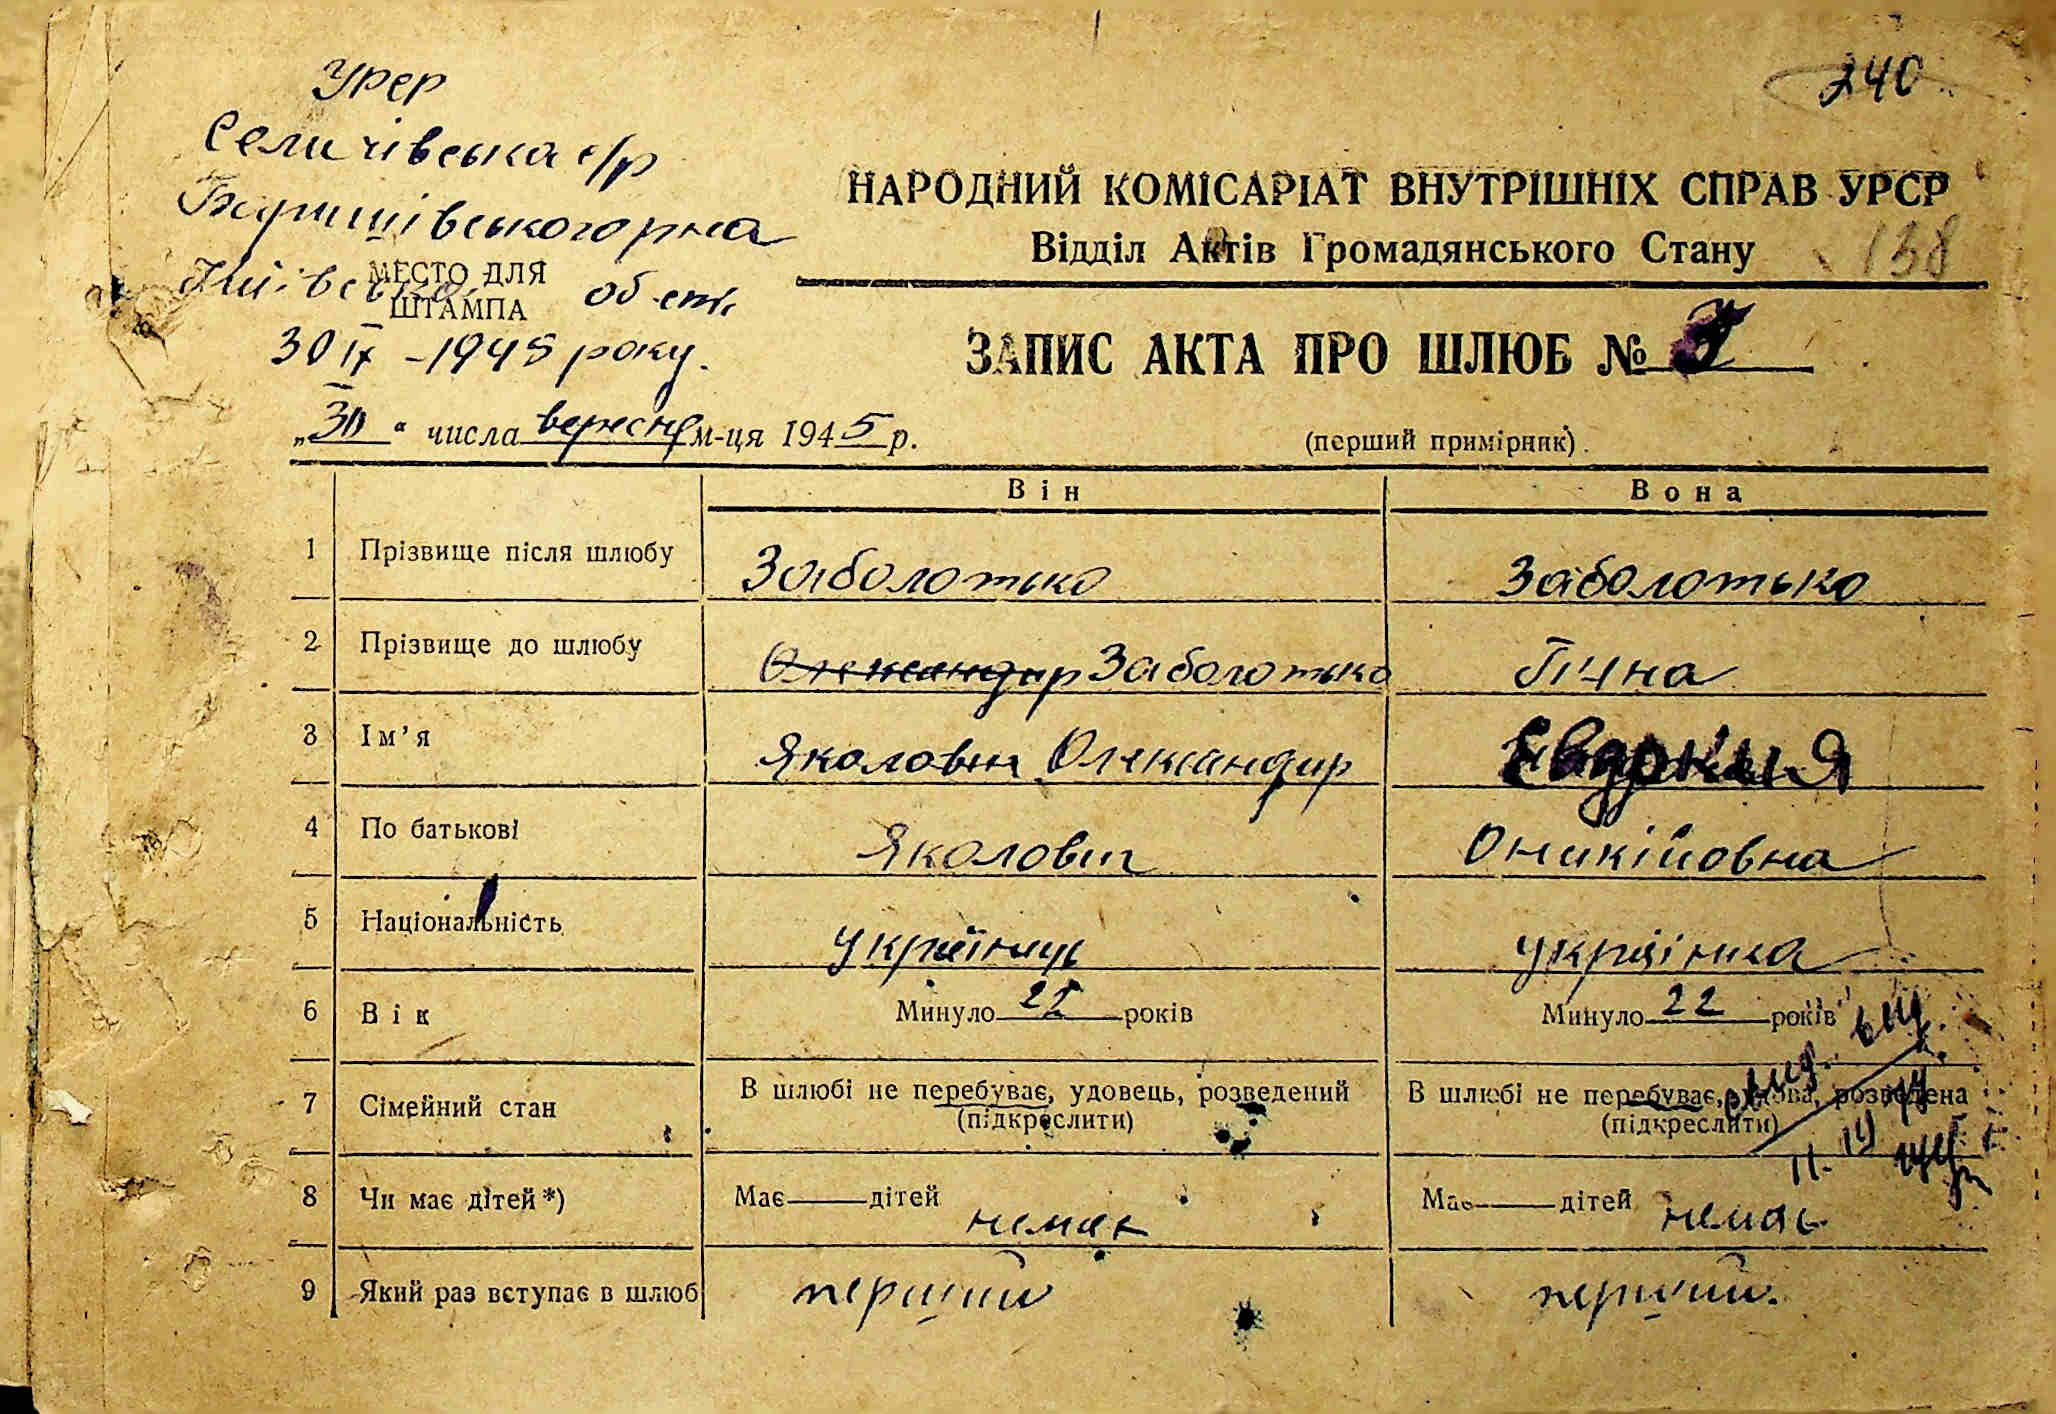 УРСР
240
Селичівська с/р
Баришівського р-на
Київської області
МЕСТО ДЛЯ
ШТАМПА
30 ІХ - 1945 року.
НАРОДНИЙ КОМІСАРІАТ ВНУТРІШНІХ СПРАВ УРСР
Відділ Актів Громадянського Стану 138
ЗАПИС АКТА ПРО ШЛЮБ №
„30“ числа вересня м-ця 1945 р.
(перший примірник).
Він Вона
1 Прізвище після шлюбу Заболотько Заболотько
2 Прізвище до шлюбу Олександир Заболотько Пічна
3 Ім’я Яколович Олександир Евдокия
4 По батькові Яколович Оникійовна
5 Національність українець українка
6 Вік Минуло років Минуло 22 років
7 Сімейний стан В шлюбі не перебуває, удовець, розведений В шлюбі не перебуває, удова, розведена
(підкреслити) (підкреслити)
8 Чи має дітей*) Має дітей немає Має дітей немає
9 Який раз вступає в шлюб перший перший.